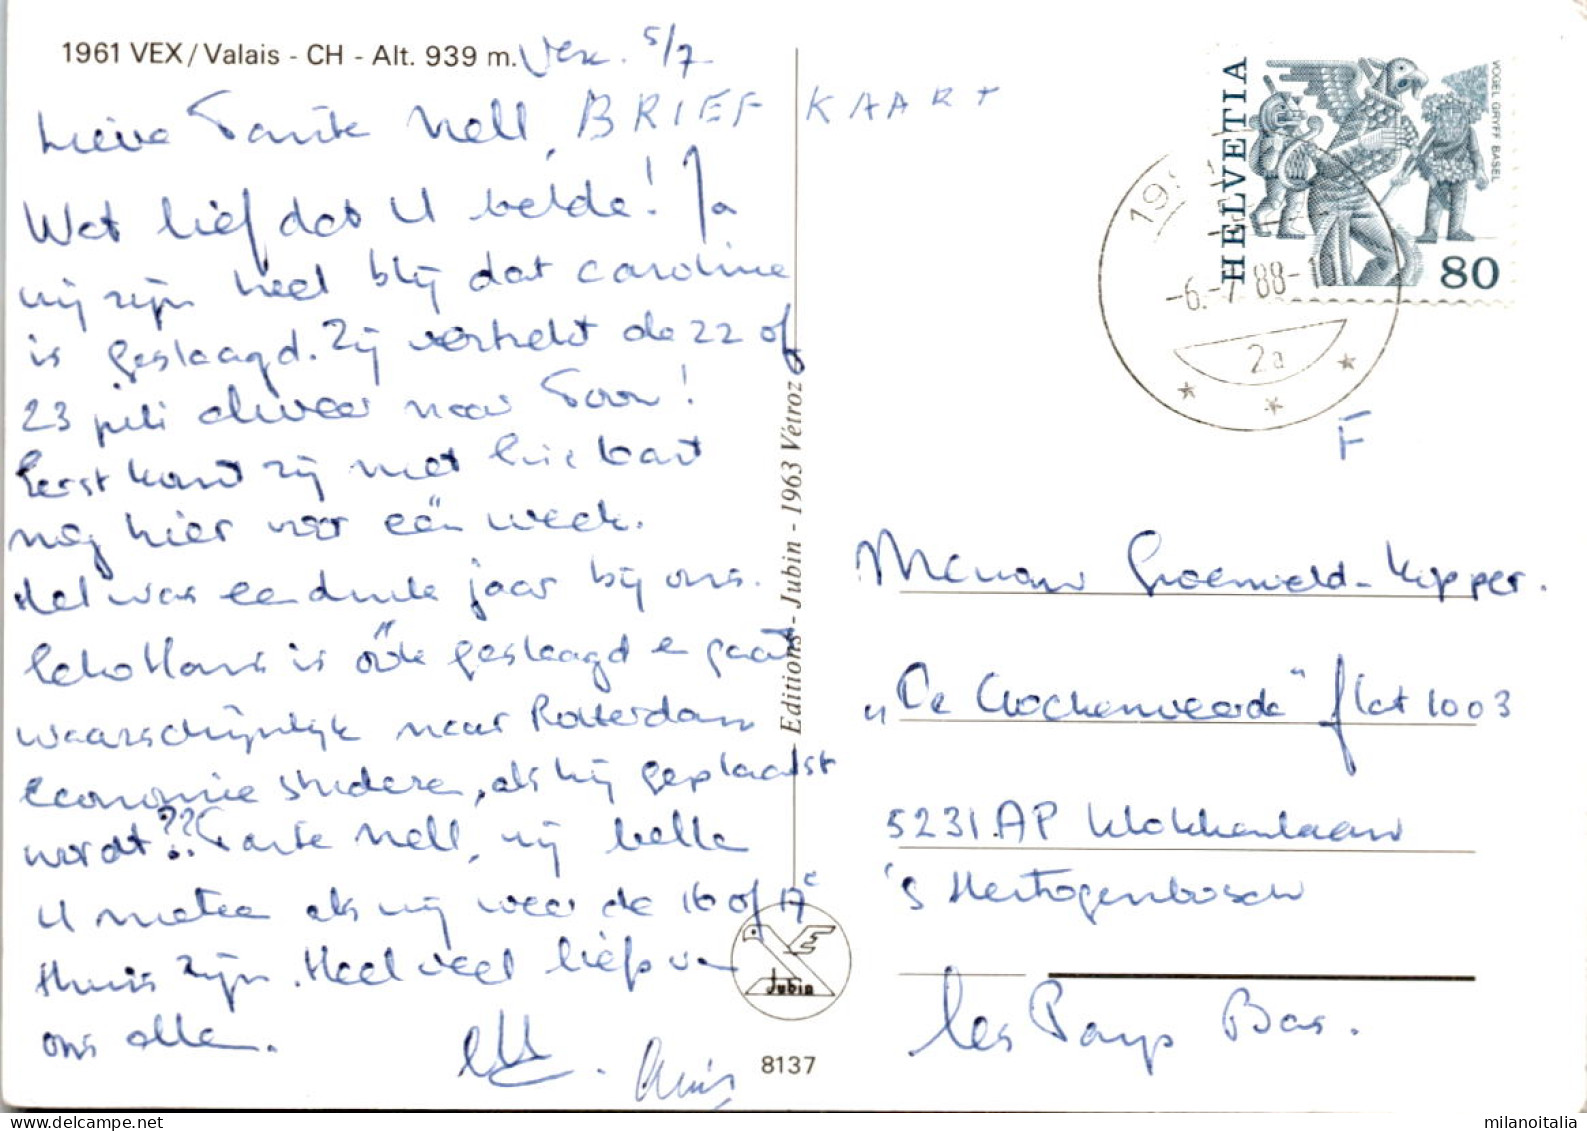 1961 VEX / Valais - CH - Alt. 939 m. Vex. 5/7
Lieve Tante Nell, BRIEF KAART
Wat lief dat U belde! Ja
wij zijn heel blij dat Caroline
is geslaagd. Zij vertrekt de 22 of
23 juli alweer naar
Eerst komt zij met
nog hier voor één week.
Het was een druk jaar bij ons.
is óók geslaagd en gaat
waarschijnlijk naar Rotterdam
economie studeren, als hij geplaatst
wordt?? Tante Nell, wij bellen
U meteen als wij weer de 16 of 17e
thuis zijn. Heel veel liefs van
ons allen.
HELVETIA
VOGEL GRYFF BASEL
80
-6.-7.88-1
2a
F
Mevrouw Groeneveld-Kupper.
„De Clockenweerde" flat 1003
5231.AP Klokkenlaan
's Hertogenbosch
Les Pays Bas.
Editions - Jubin - 1963 Vétroz
Jubin
8137
milanoitalia